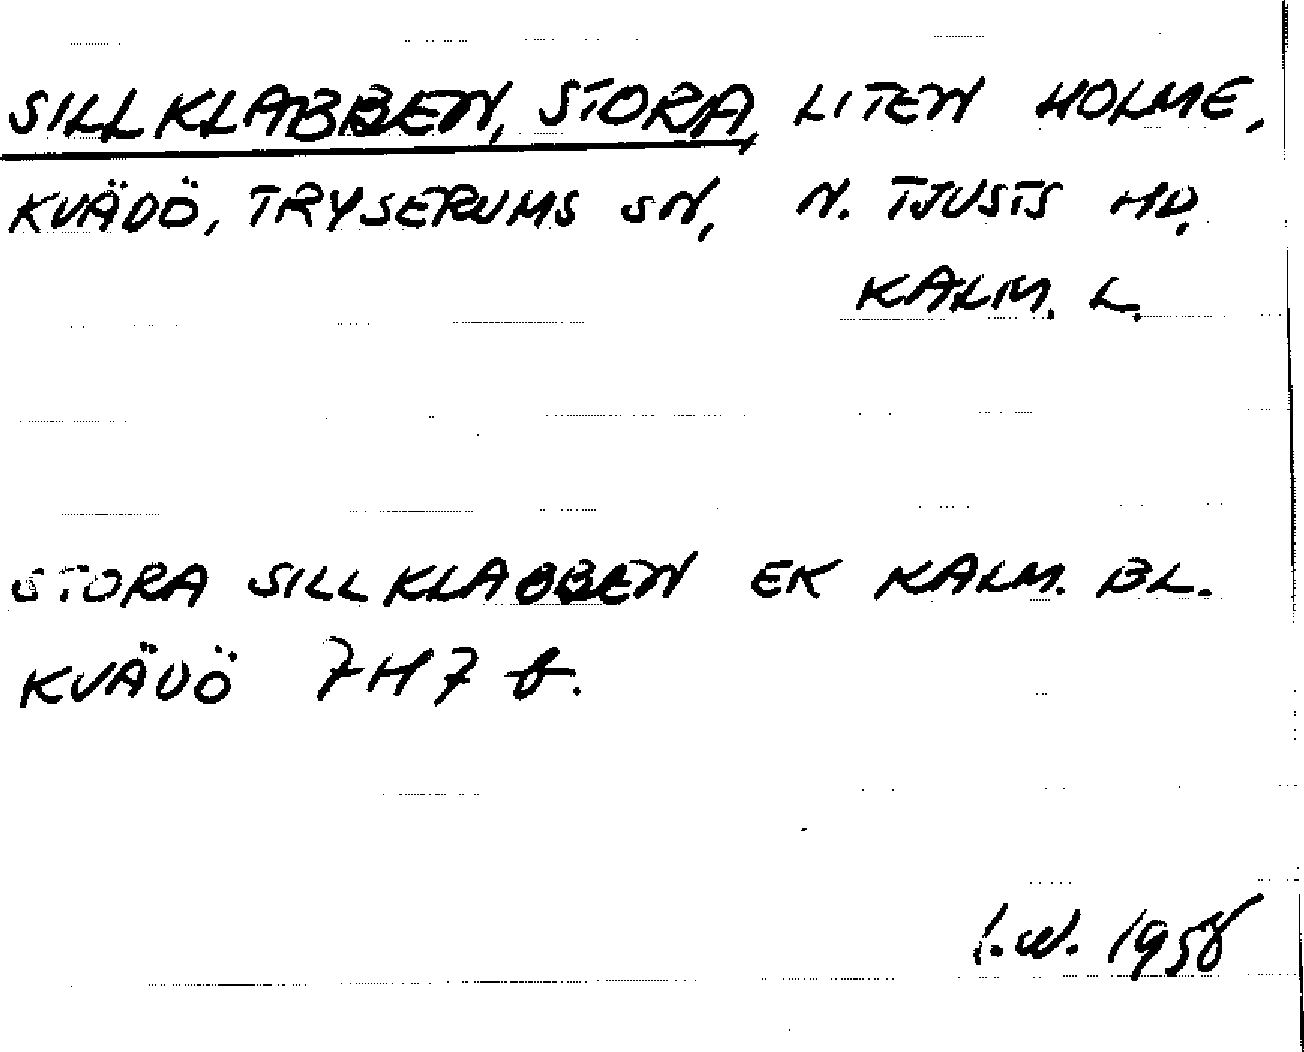 SILLKLABBEN, STORA, LITEN HOLME,
KVÄDÖ, TRYSERUMS SN, N. TJUSTS HD,
KALM. L.
STORA SILLKLABBEN EK KALM. BL.
KVÄDÖ 7H7 b.
I.W. 1958